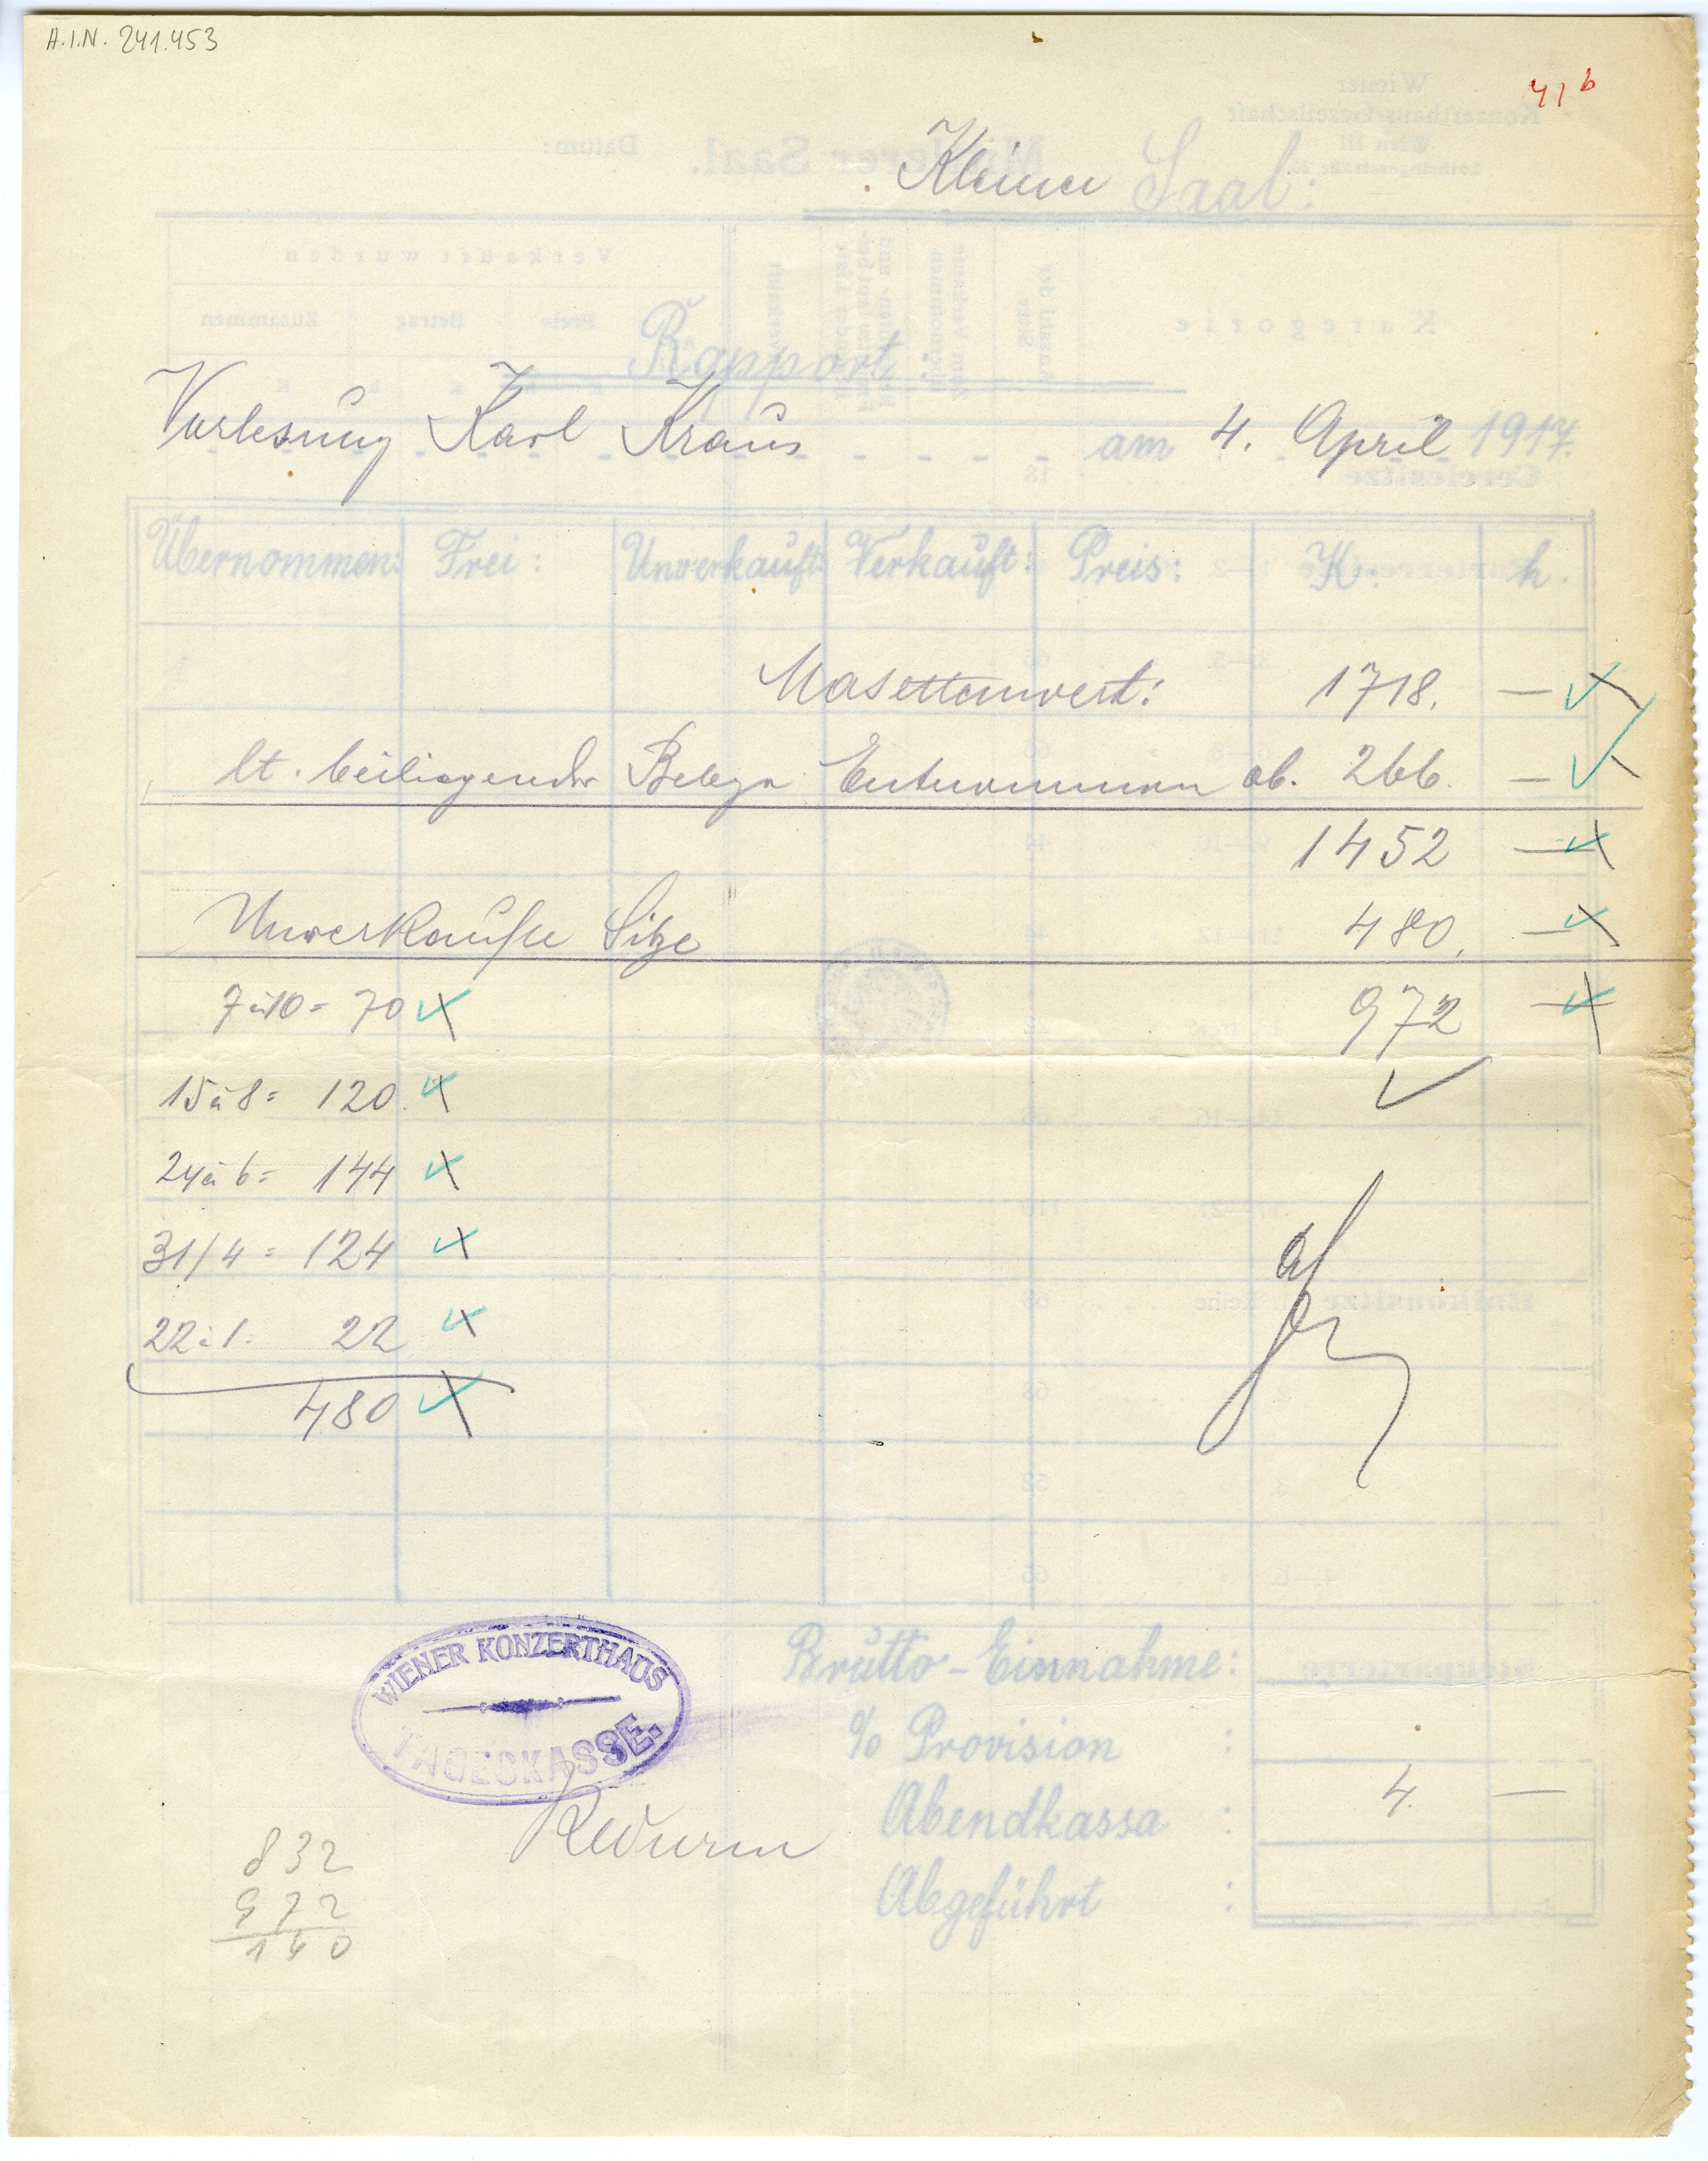 A.I.N. 241.453
41 b
Kleiner Saal:
Rapport:
Vorlesung Karl Kraus am 4. April 1917.
Übernommen: Frei: Unverkauft: Verkauft: Preis: K: h.
Masettenwert: 1718. —
lt. beiliegender Belege Entnommen ab. 266. —
1452 —
Unverkaufte Sitze 480. —
7 à 10 = 70 972 —
15 à 8 = 120
24 à 6 = 144
31 / 4 = 124
22 à 1 = 22
480
Brutto-Einnahme:
% Provision :
Abendkassa : 4. —
Abgeführt :
WIENER KONZERTHAUS
TAGESKASSE.
832
972
140